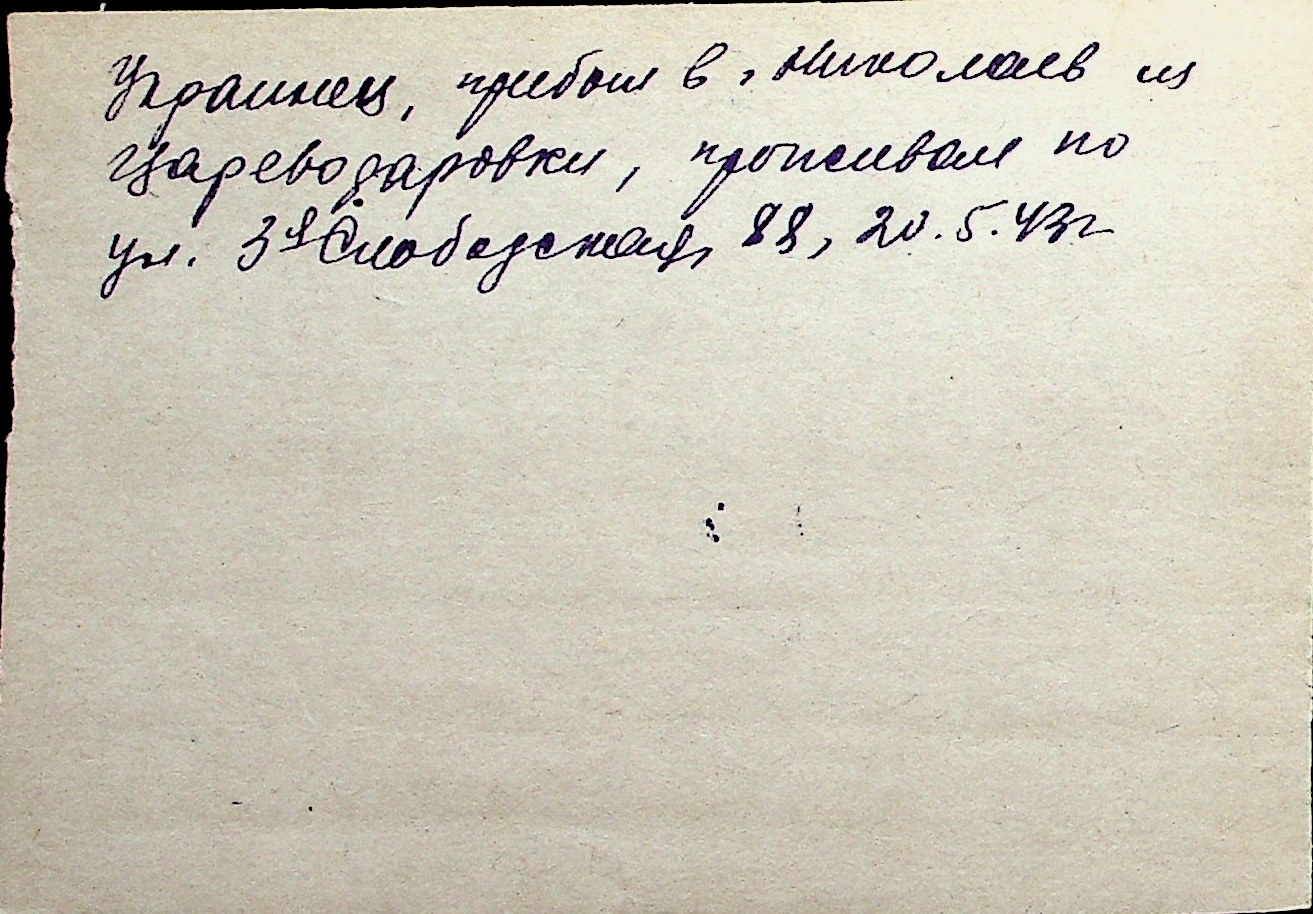 Украинец, прибыл в г. Николаев из
Цареводаровки, проживал по
ул. 3я Слободская, 88, 20.5.43г